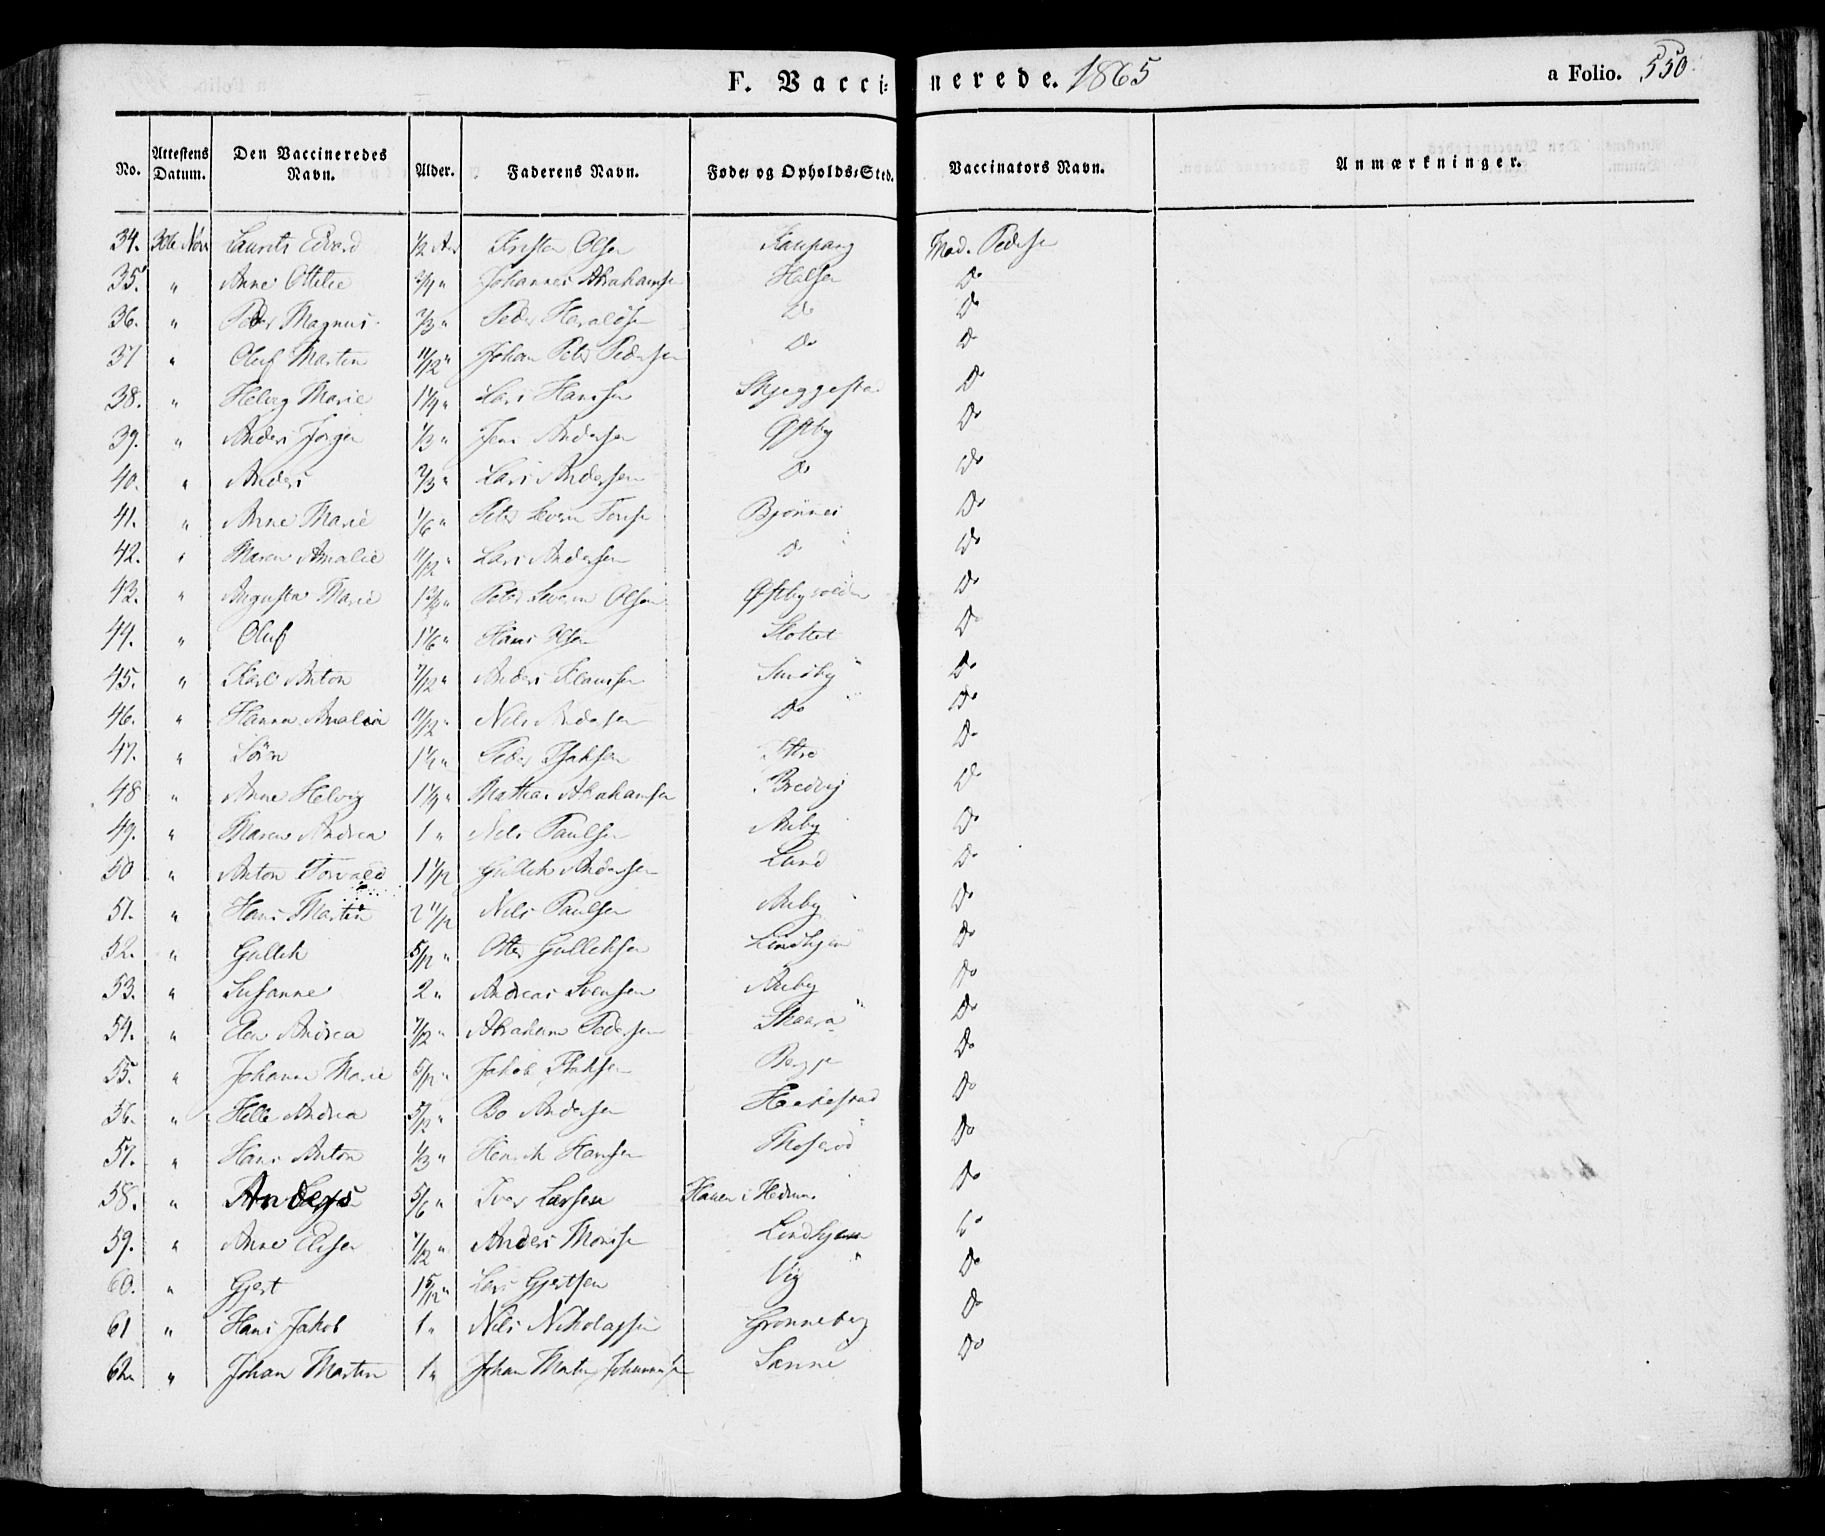 F. Vaccinerede. 1865
a Folio. 550
No. | Attestens Datum. | Den Vaccineredes Navn. | Alder. | Faderens Navn. | Føde- og Opholds-Sted. | Vaccinators Navn. | Anmærkninger.
34. 30te Novr Laurits Edvard 1/2 Aar Olsen Kaupang Mad. Peders
35. " Anne Ottilie 3/4 " Johannes Abrahams Halsen Do
36. " Peder Magnus 2/3 " Peder Do Do
37 " Oluf Martin 11/12 " Johan Peter Pedersen Do Do
38. " Helvig Marie 1 1/4 " Lars Hansen Skjeggestad Do
39. " Anders Jørgen 1/3 " Jens Andersen Østby Do
40. " Anders 2/3 " Lars Andersen Do Do
41. " Anne Marie 1/6 " Peter Severin Bjønnes Do
42. " Maren Amalie 11/12 " Lars Andersen Do Do
43. " Augusta Marie Peter Severin Olsen Do
44. " Oluf 1 1/6 " Hans Olsen Slottet Do
45. " Karl Anton 7/12 " Anders Klausen Sundby Do
46. " Hanna Amalia 11/12 " Nils Andersen Do Do
47. " Sørn Peder Do
48 " Anne Helvig 1 1/4 " Mathias Abrahamsen Bredvig Do
49. " Maren Andrea 1 " Nils Paulsen Auby Do
50 " Anton Torvald 1 1/12 Gullik Andersen Lund Do
51. " Hans Martin 2 11/12 Nils Paulsen Auby Do
52. " Gullik 5/12 " Otter Gulliksen Lindhjem Do
53. " Susanne 2 " Andreas Svensen Auby Do
54. " Elen Andrea 7/12 " Abraham Pedersen Skaara Do
55. " Johanne Marie 5/12 " Jakob Do
56. " Helle Andrea 5/12 " Bo Andersen Do
57. " Hans Anton 1/3 " Henrik Hansen Do
58. " Anders 5/6 " Iver Larsen i Hedrum Do
59. " Anne Elisa Anders Lindhjem Do
60. " Gjert 1 5/12 " Lars Gjertsen Vig Do
61 " Hans Jakob 1 " Nils Nikolaysen Grønneberg Do
62 " Johan Martin 1 " Johan Martin Johannesen Sanne Do